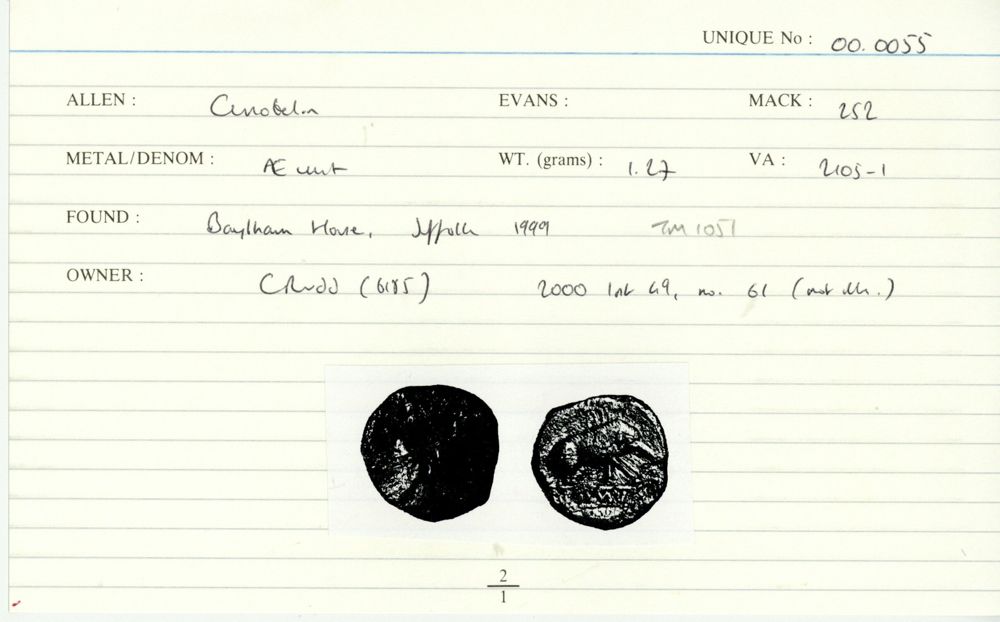 UNIQUE No : 00.0055
ALLEN : Cunobelin EVANS : MACK : 252
METAL/DENOM : Æ unit WT. (grams) : 1.27 VA : 2105-1
FOUND : Baylham House, Suffolk 1999 TM 1051
OWNER : C Rudd (6185) 2000 list 49, no. 61 (not ill.)
2
1